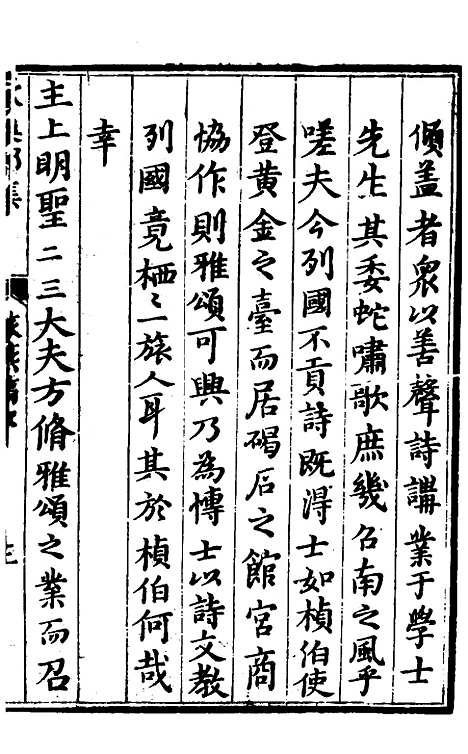 傾盖者衆以善聲詩講業于學士
先生其委蛇嘯歌庶幾召南之風乎
嗟夫今列國不貢詩既淂士如楨伯使
登黄金之臺而居碣石之館宮商
協作則雅頌可興乃為博士以詩文教
列國竟栖〻一旅人耳其於楨伯何哉
幸
主上明聖二三大夫方脩雅頌之業而召